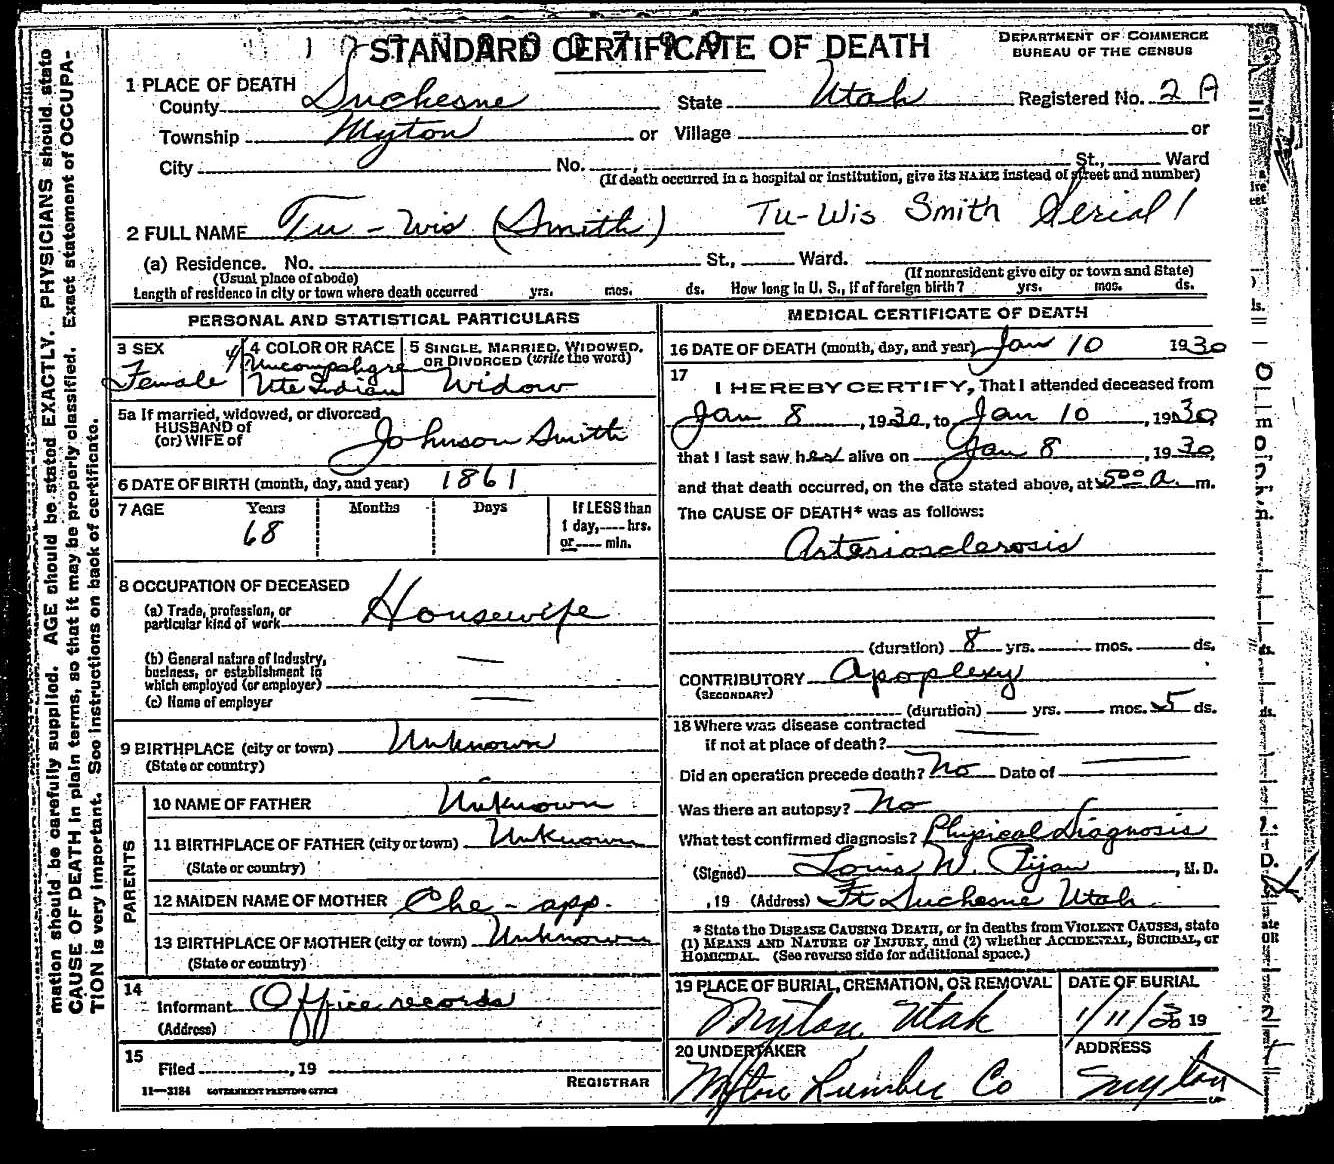 STANDARD CERTIFICATE OF DEATH
DEPARTMENT OF COMMERCE
BUREAU OF THE CENSUS
1 PLACE OF DEATH
County Duchesne State Utah Registered No. 2 A
Township Myton or Village or
City No. St., Ward
(If death occurred in a hospital or institution, give its NAME instead of street and number)
2 FULL NAME Tu-Wis (Smith) Tu-Wis Smith Serial 1
(a) Residence. No. St., Ward.
(Usual place of abode) (If nonresident give city or town and State)
Length of residence in city or town where death occurred yrs. mos. ds. How long in U. S., if of foreign birth? yrs. mos. ds.
PERSONAL AND STATISTICAL PARTICULARS
3 SEX Female
4/4
4 COLOR OR RACE Uncompahgre Ute Indian
5 SINGLE, MARRIED, WIDOWED, OR DIVORCED (write the word) Widow
5a If married, widowed, or divorced
HUSBAND of
(or) WIFE of Johnson Smith
6 DATE OF BIRTH (month, day, and year) 1861
7 AGE Years Months Days If LESS than
68 1 day, hrs.
or min.
8 OCCUPATION OF DECEASED
(a) Trade, profession, or
particular kind of work Housewife
(b) General nature of industry,
business, or establishment in
which employed (or employer) —
(c) Name of employer —
9 BIRTHPLACE (city or town) Unknown
(State or country)
PARENTS
10 NAME OF FATHER Unknown
11 BIRTHPLACE OF FATHER (city or town) Unknown
(State or country)
12 MAIDEN NAME OF MOTHER Che-app.
13 BIRTHPLACE OF MOTHER (city or town) Unknown
(State or country)
14
Informant Office records
(Address)
15
Filed , 19
REGISTRAR
11—3184 GOVERNMENT PRINTING OFFICE
MEDICAL CERTIFICATE OF DEATH
16 DATE OF DEATH (month, day, and year) Jan 10 1930
17
I HEREBY CERTIFY, That I attended deceased from
Jan 8, 1930, to Jan 10, 1930,
that I last saw her alive on Jan 8, 1930,
and that death occurred, on the date stated above, at 5:00 a. m.
The CAUSE OF DEATH* was as follows:
Arteriosclerosis
(duration) 8 yrs. mos. ds.
CONTRIBUTORY Apoplexy
(SECONDARY)
(duration) yrs. mos. 5 ds.
18 Where was disease contracted
if not at place of death? —
Did an operation precede death? No Date of —
Was there an autopsy? No
What test confirmed diagnosis? Physical Diagnosis
(Signed) Louis W. Pijan, M. D.
, 19 (Address) Ft Duchesne Utah
* State the DISEASE CAUSING DEATH, or in deaths from VIOLENT CAUSES, state
(1) MEANS AND NATURE OF INJURY, and (2) whether ACCIDENTAL, SUICIDAL, or
HOMICIDAL. (See reverse side for additional space.)
19 PLACE OF BURIAL, CREMATION, OR REMOVAL DATE OF BURIAL
Myton Utah 1/11/30 19
20 UNDERTAKER ADDRESS
Myton Lumber Co Myton
mation should be carefully supplied. AGE should be stated EXACTLY. PHYSICIANS should state
CAUSE OF DEATH in plain terms, so that it may be properly classified. Exact statement of OCCUPA-
TION is very important. See instructions on back of certificate.